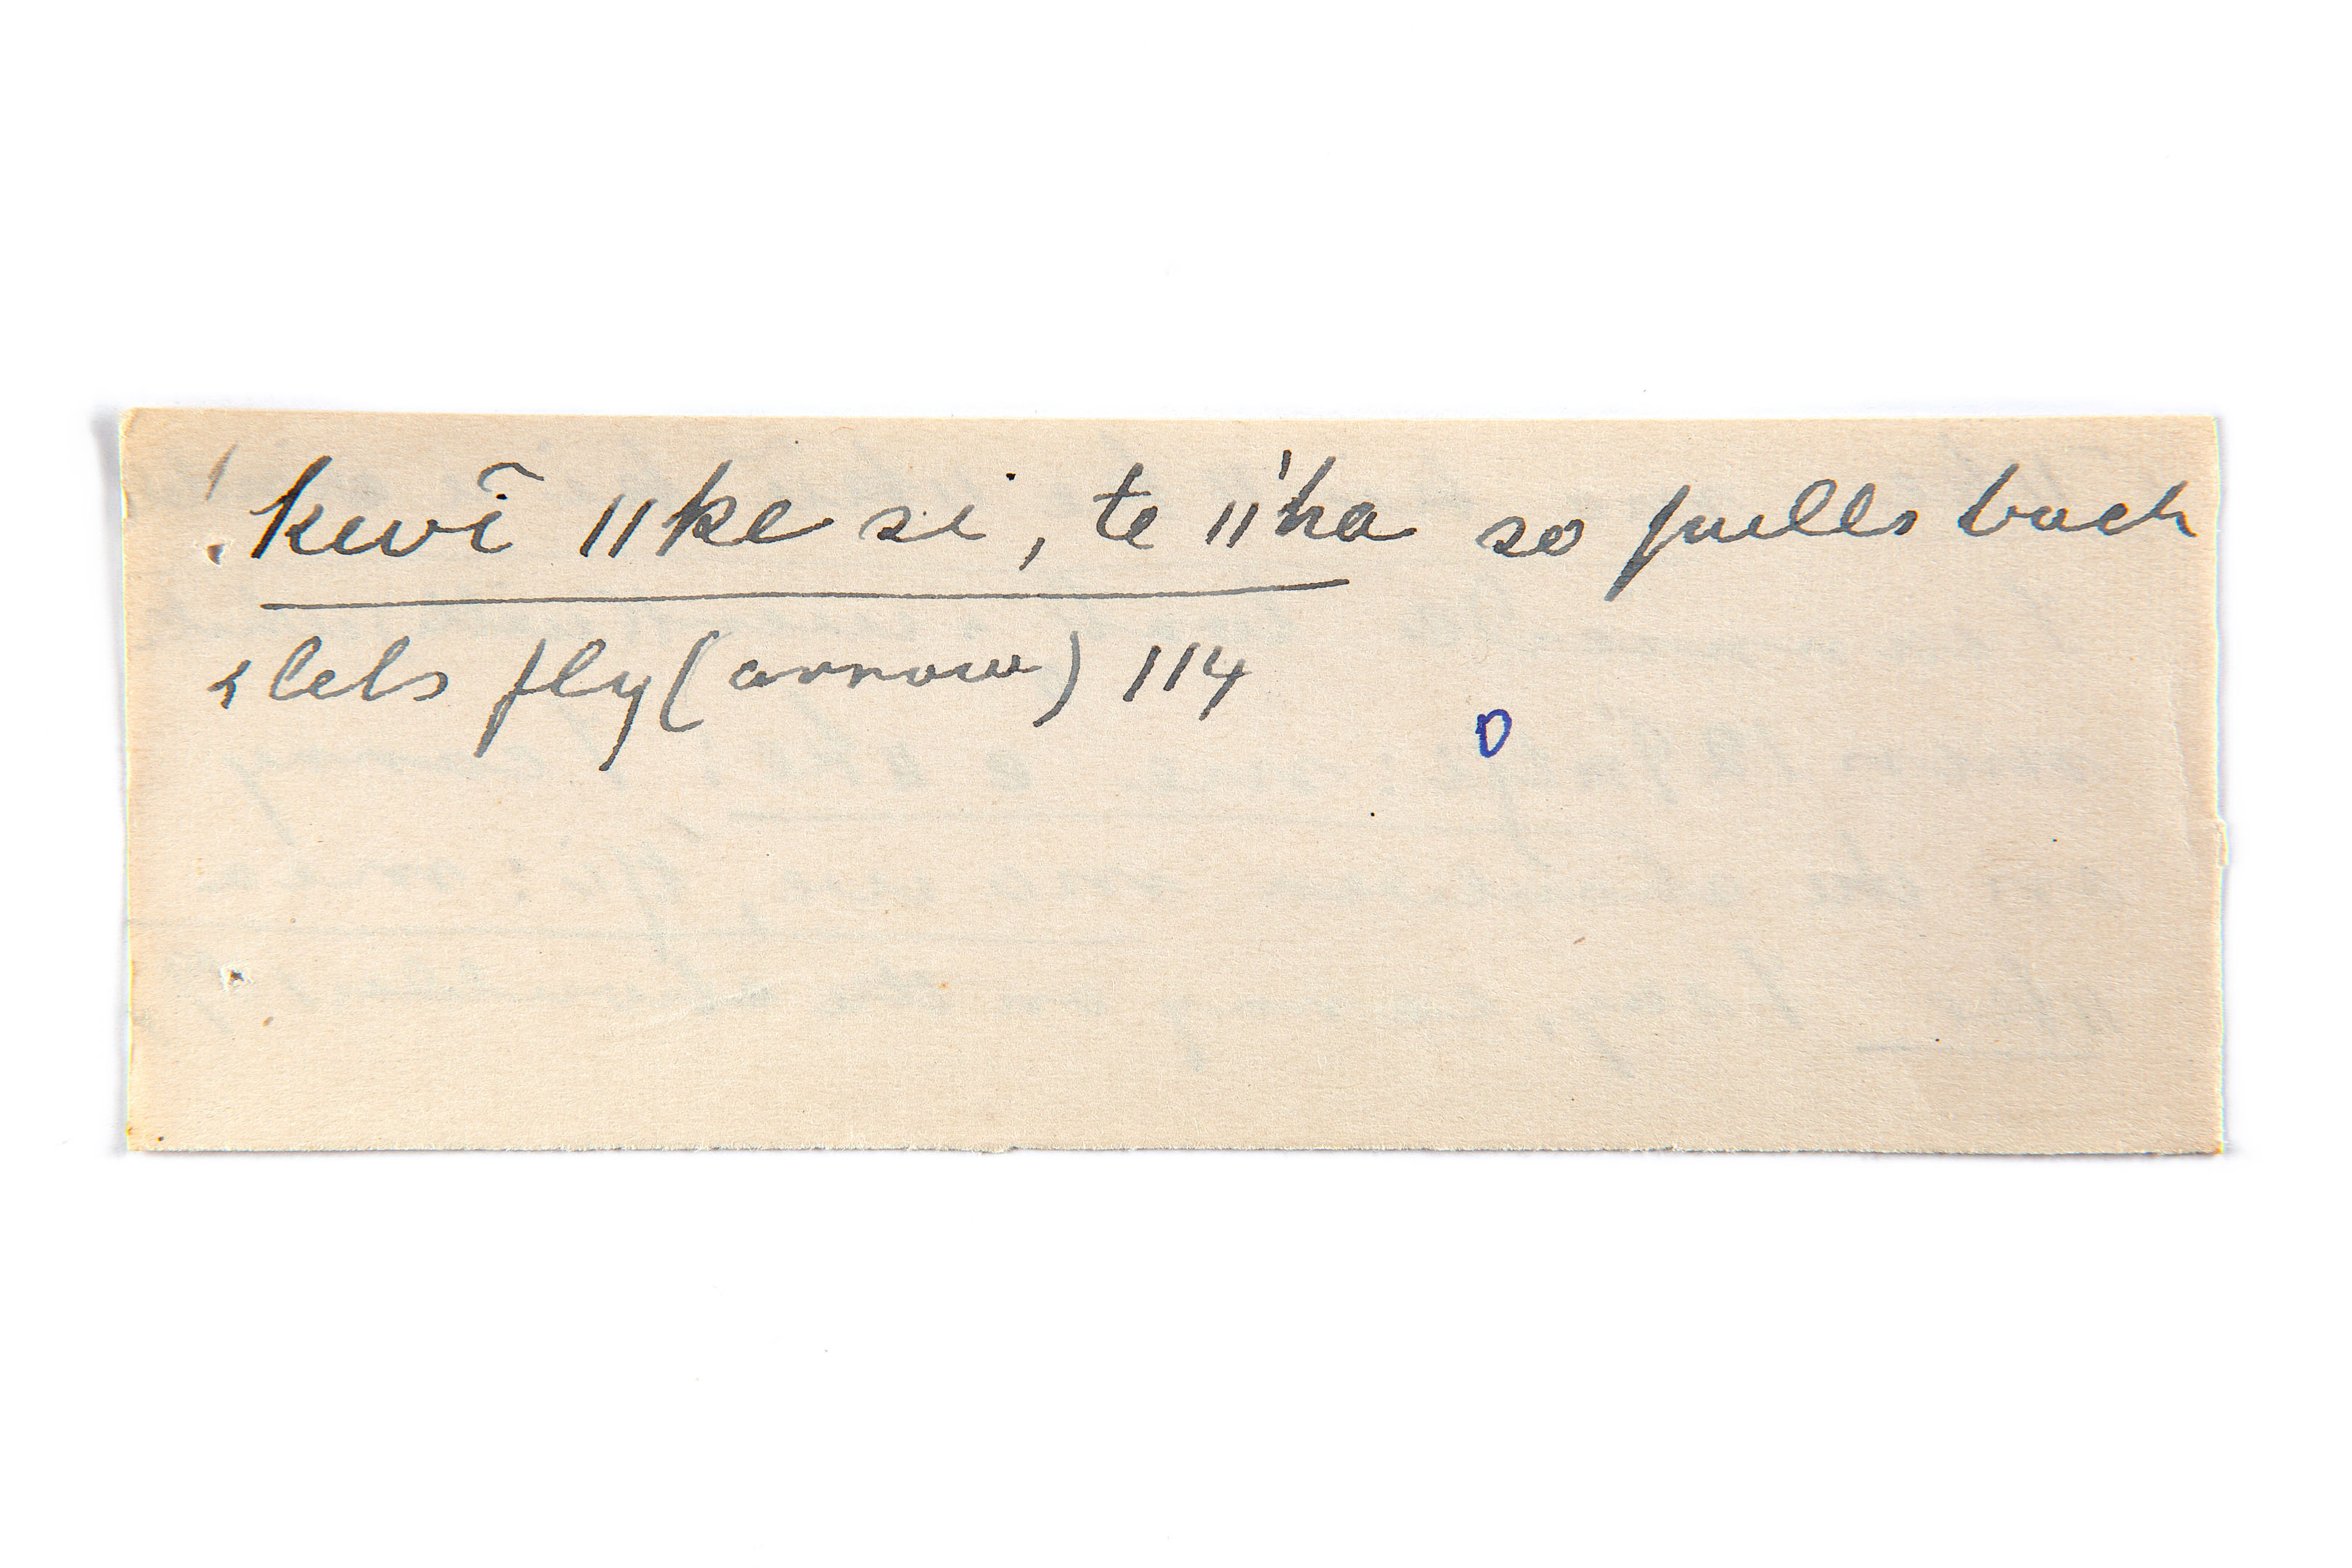 !kuvĩ ǁke si, te ǁ'ha so pulls back
& lets fly (arrow) 114
D